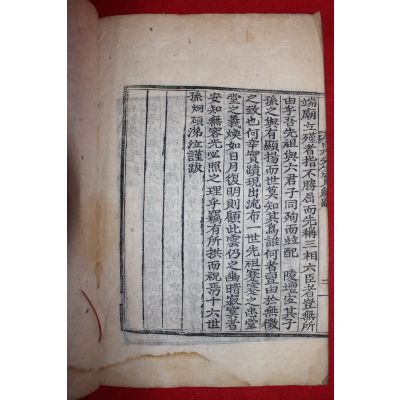 端廟立殣者指不勝屈而先稱三相六臣者豈無所
由乎吾先祖與六君子同殉而竝配 陵壇宜其子
孫之與有顯揚而世莫知其爲誰何者亶由於無徵
之致也何幸實蹟現出流布一世先祖蹇蹇之忠堂
堂之義煥如日月復明則顧此雲仍之幽暗寂寞者
安知無容光必照之理乎竊有所拱而祝焉十六世
孫炯碩涕泣謹跋